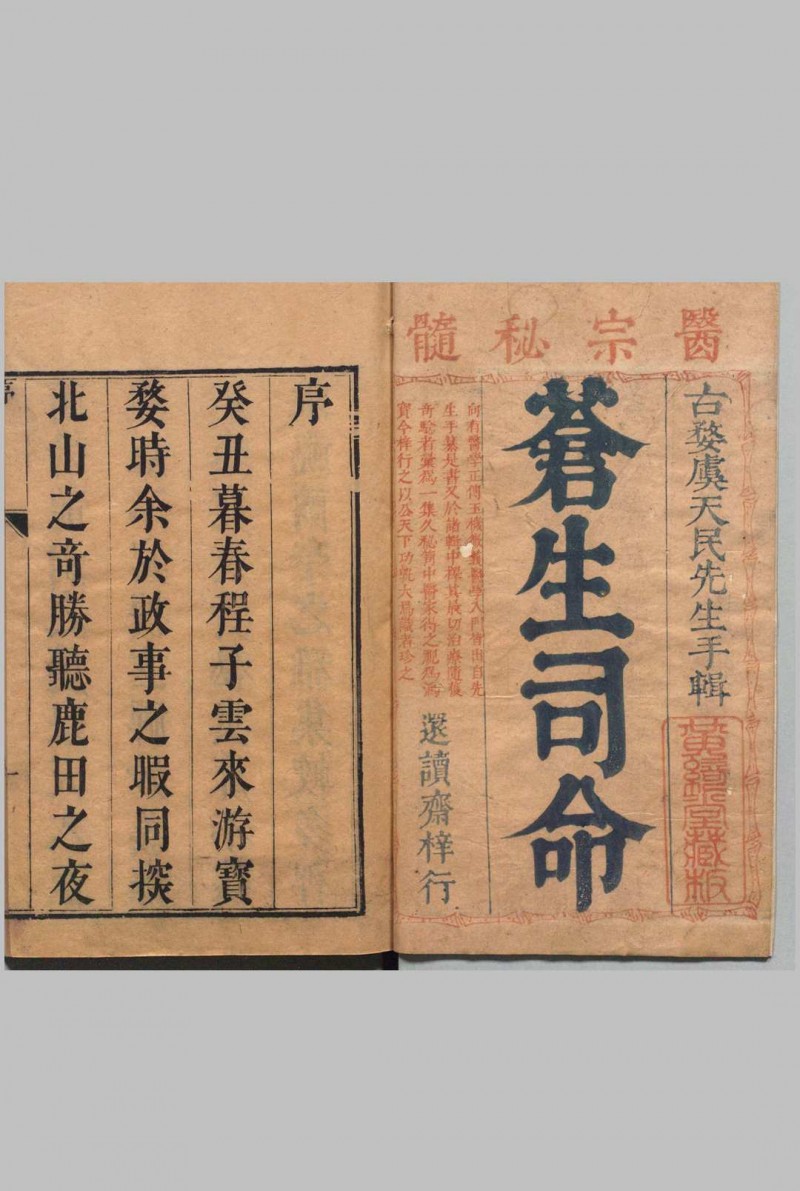 醫宗秘髓
古婺虞天民先生手輯
蒼生司命
向有醫學正傳玉機微義醫學入門皆出自先
生手纂是書又於諸輯中擇其最切治療隨試
奇驗者彙爲一集久秘笥中醫家得之
寶今梓行之以公天下功號大焉識者珍之
還讀齋梓行
藏板
序
癸丑暮春程子雲來游寶
婺時余於政事之暇同探
北山之奇勝聽鹿田之夜
序
一